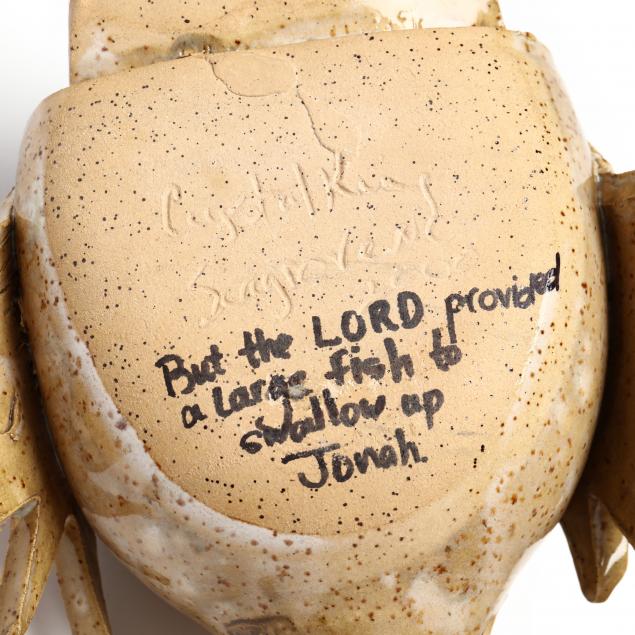 Crystal King
Seagrove NC
But the LORD provided
a Large fish to
swallow up
Jonah.